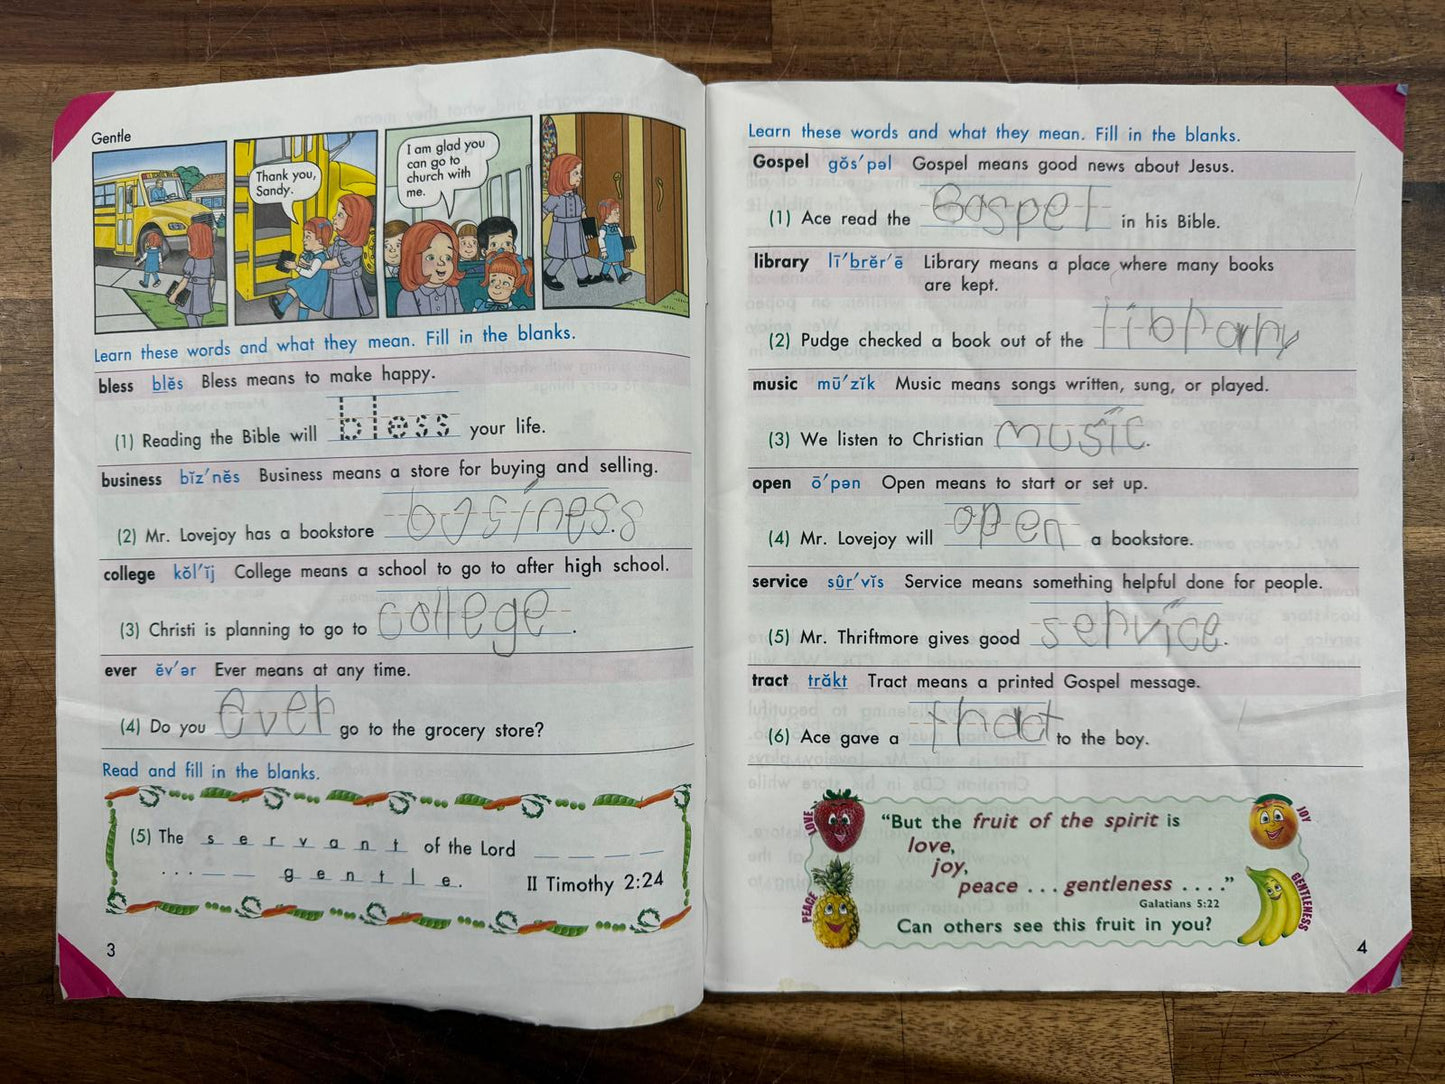 Gentle
Thank you,
Sandy.
I am glad you
can go to
church with
me.
Learn these words and what they mean. Fill in the blanks.
bless blĕs Bless means to make happy.
(1) Reading the Bible will bless your life.
business bĭz′nĕs Business means a store for buying and selling.
(2) Mr. Lovejoy has a bookstore business.
college kŏl′ĭj College means a school to go to after high school.
(3) Christi is planning to go to college.
ever ĕv′ər Ever means at any time.
(4) Do you ever go to the grocery store?
Read and fill in the blanks.
(5) The s e r v a n t of the Lord _ _ _ _
. . . _ _ g e n t l e.
II Timothy 2:24
3
Learn these words and what they mean. Fill in the blanks.
Gospel gŏs′pəl Gospel means good news about Jesus.
(1) Ace read the Gospel in his Bible.
library lī′brĕr′ē Library means a place where many books
are kept.
(2) Pudge checked a book out of the library
music mū′zĭk Music means songs written, sung, or played.
(3) We listen to Christian music.
open ō′pən Open means to start or set up.
(4) Mr. Lovejoy will open a bookstore.
service sûr′vĭs Service means something helpful done for people.
(5) Mr. Thriftmore gives good service.
tract trăkt Tract means a printed Gospel message.
(6) Ace gave a tract to the boy.
LOVE
JOY
PEACE
GENTLENESS
“But the fruit of the spirit is
love,
joy,
peace . . . gentleness . . . .”
Galatians 5:22
Can others see this fruit in you?
4